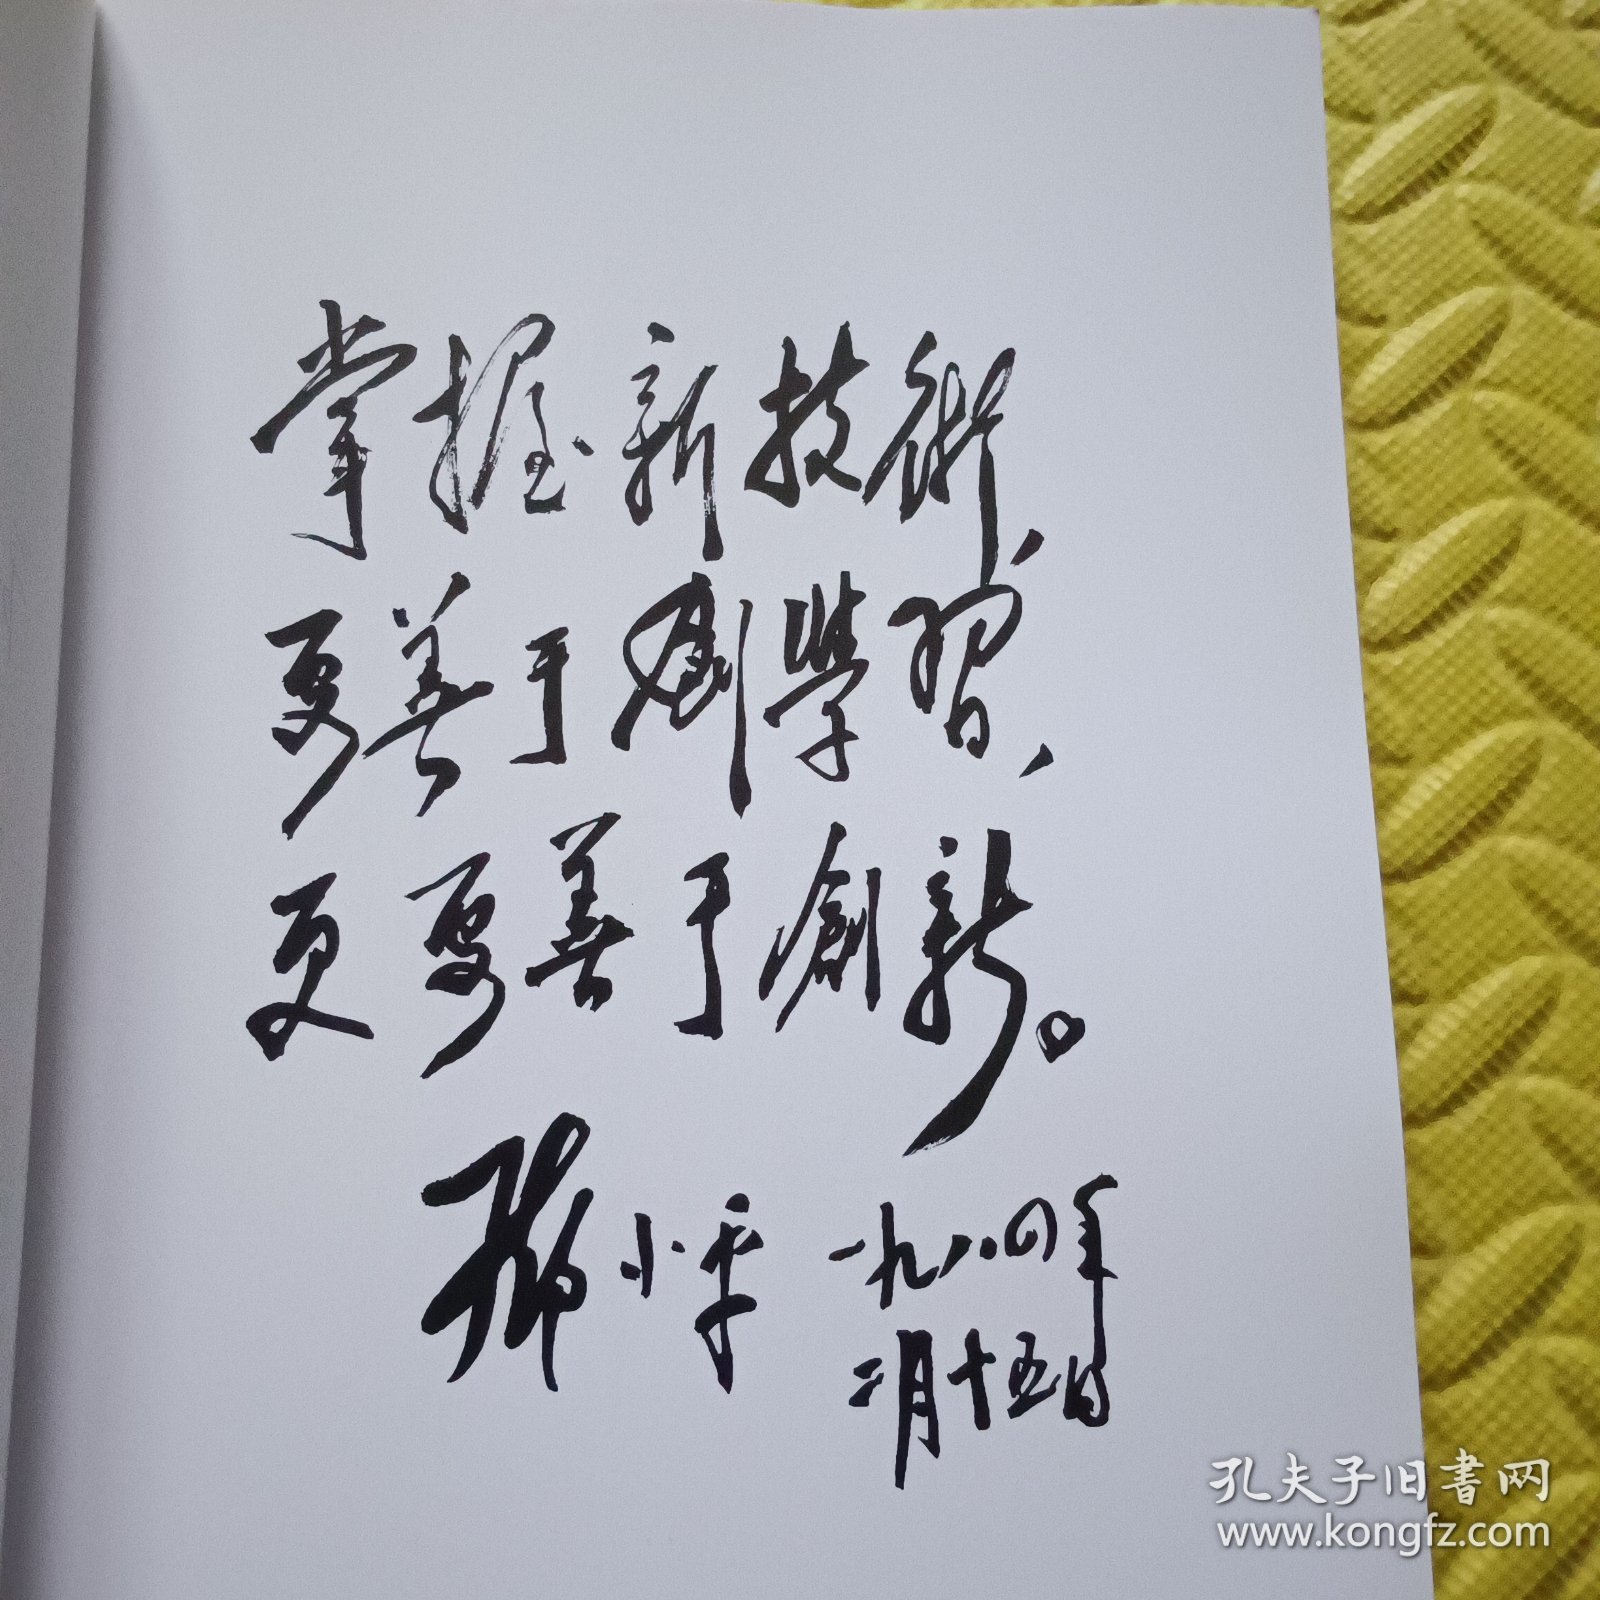 掌握新技術，
要善于學習，
更要善于創新。
邓小平 一九八四年
二月十五日
孔夫子旧書网
www.kongfz.com